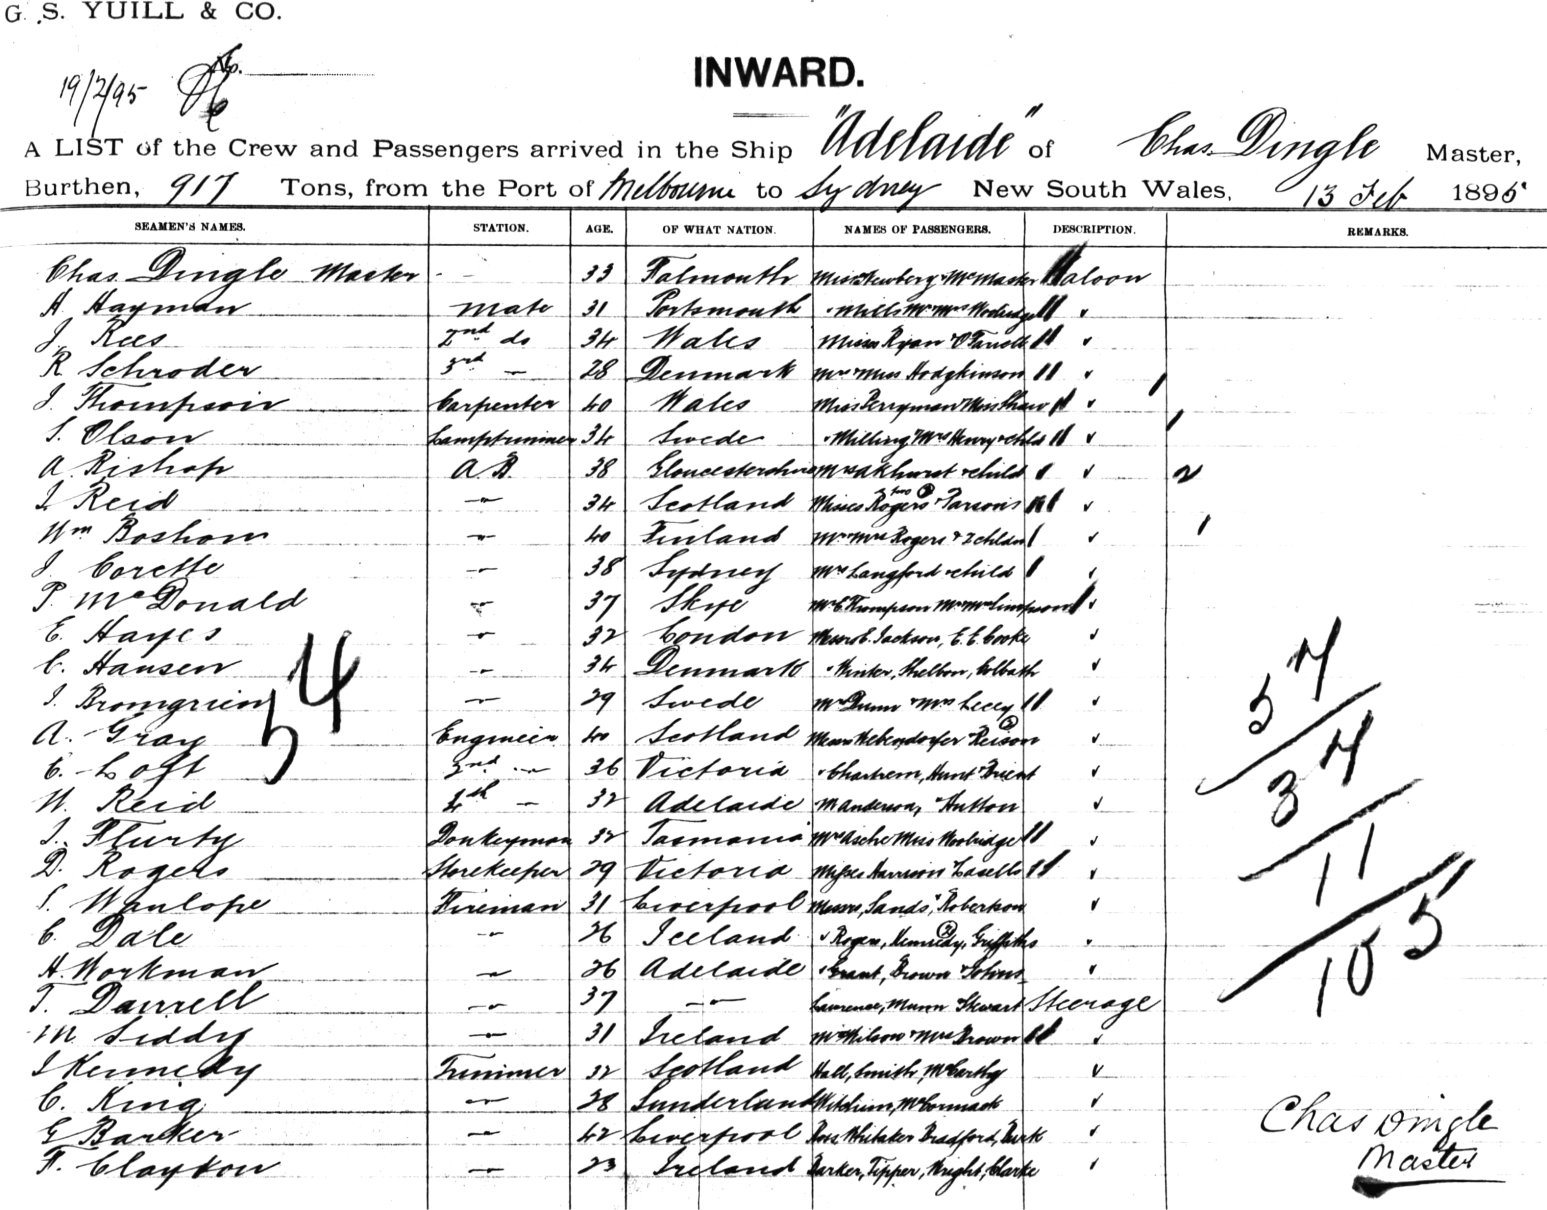 G. S. YUILL & CO.
19/2/95 No.
INWARD.
A LIST of the Crew and Passengers arrived in the Ship "Adelaide" of Chas. Dingle Master,
Burthen, 917 Tons, from the Port of Melbourne to Sydney New South Wales, 13 Feb 1895
SEAMEN'S NAMES. STATION. AGE. OF WHAT NATION. NAMES OF PASSENGERS. DESCRIPTION. REMARKS.
Chas. Dingle Master - - 33 Falmouth Miss Newberg McMaster Saloon
H Hayman Mate 31 Portsmouth " Mills Mr Mrs Woolridge "
J. Rees 2nd do 34 Wales Misses Ryan O'Farrell "
R Schroder 3rd " 28 Denmark Mrs Miss Hodgkinson "
J. Thompson Carpenter 40 Wales Miss Perryman Miss Shaw "
S. Olson Lamptrimmer 34 Swede " Milling Mrs Henry & child "
A. Bishop A.B. 38 Gloucestershire Mrs Akhurst & child " 2
J. Reid " 34 Scotland Misses Rogers Parsons "
Wm Boshom " 40 Finland Mr Mrs Rogers & 2 childn "
J Corette " 38 Sydney Mrs Langford & child "
P. McDonald " 37 Skye Mr C Thompson Mr Mrs Simpson "
E. Hayes " 32 London Messrs E. Jackson, E. E. Cooke "
C. Hansen " 34 Denmark " Winter, Shelbon, Colbath "
J. Bromgrien " 29 Swede Mr Dunn & Mrs Lecey "
A. Gray Engineer 40 Scotland Messrs Reison "
C. Loft 2nd " 36 Victoria " Hunt "
W. Reid 4th " 32 Adelaide Mr Anderson, " Hutton "
J. Flurty Donkeyman 32 Tasmania Mrs Asche Miss Woolridge "
D. Rogers Storekeeper 29 Victoria Misses Harrison Casells "
S. Wanlope Fireman 31 Liverpool Messrs Sands, Robertson "
C. Dale " 26 Iceland " Rogers, Kennedy, Griffiths "
H. Workman " 26 Adelaide " Grant, Brown & Johns "
T. Darrell " 37 " Laurence, Munn Stewart Steerage
M Liddy " 31 Ireland Mr Wilson & Mrs Brown "
J Kennedy Trimmer 32 Scotland Hall, Smith, McCarthy "
C. King " 28 Sunderland McCormack "
G Barker " 42 Liverpool Ross Whitaker Bradford, Burk "
F. Clayton " 23 Ireland Barker, Tipper, Wright, Clarke "
54
57
34
11
105
Chas Dingle
Master